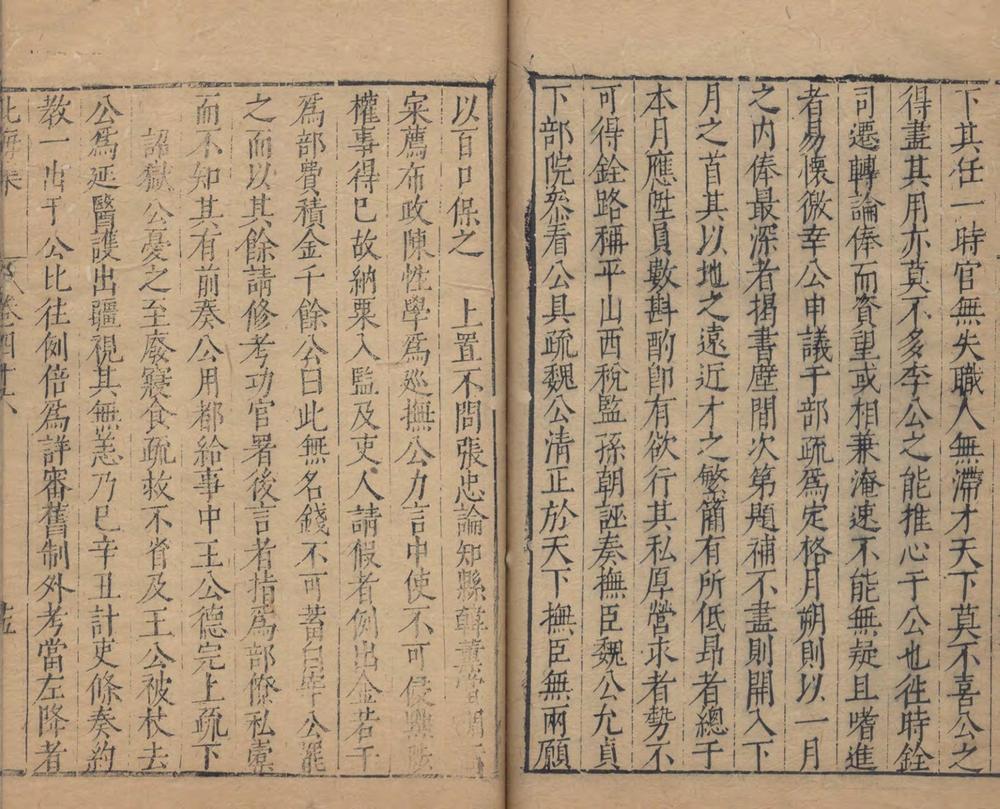 下其任一時官無失職人無滯才天下莫不喜公之
得盡其用亦莫不多李公之能推心于公也徃時銓
司遷轉論俸而資望或相兼淹速不能無疑且嗜進
者易懷徼幸公申議于部疏為定格月朔則以一月
之内俸最深者揭書壁間次第題補不盡則開入下
月之首其以地之遠近才之繁簡有所低昂者總于
本月應陞員數斟酌卽有欲行其私厚營求者勢不
可得銓路稱平山西稅監孫朝誣奏撫臣魏公允貞
下部院叅看公具疏魏公清正於天下撫臣無兩願
以百口保之　上置不問張忠論知縣韓薰
寀薦布政陳性學為巡撫公力言中使不可侵
權事得已故納粟入監及吏人請假者例出金若干
為部費積金千餘公曰此無名錢不可蓄 公罷
之而以其餘請修考功官署後言者指為部僚私橐
而不知其有前奏公用都給事中王公德完上疏下
詔獄公憂之至廢寢食疏救不省及王公被杖去
公為延醫護出疆視其無恙乃已辛丑計吏條奏約
教一出于公比往例倍為詳審舊制外考當左降者
卷四十六